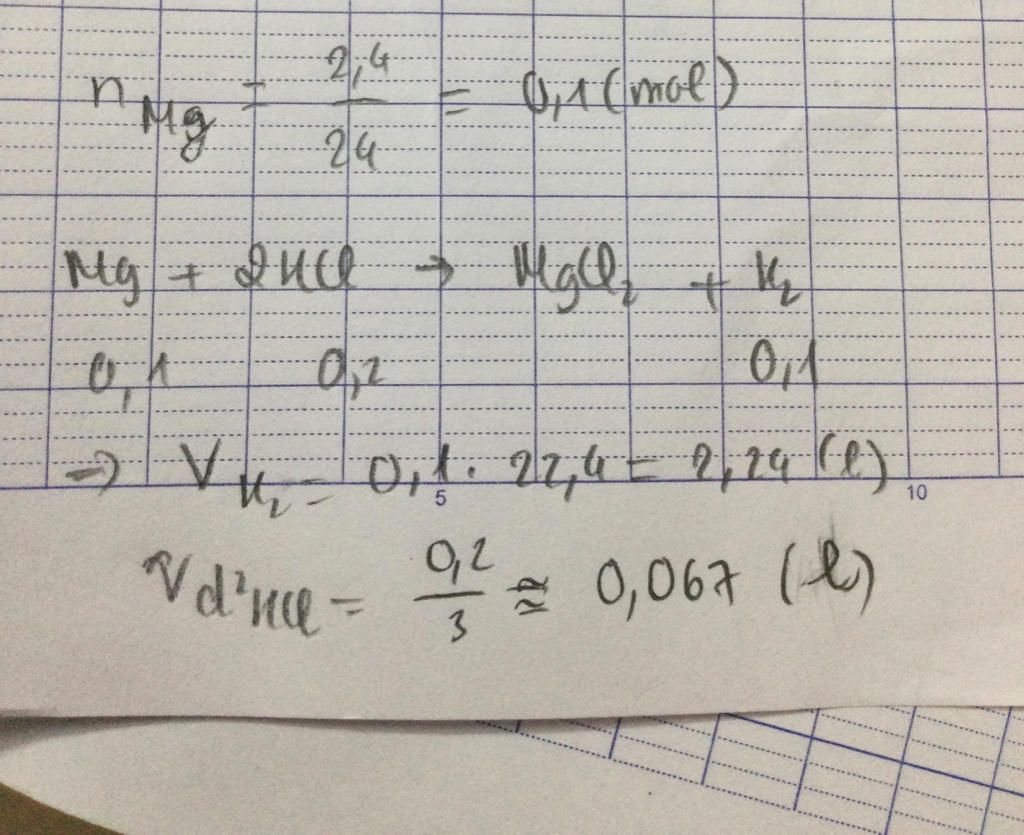 n Mg = 2,4 / 24 = 0,1 (mol)
Mg + 2HCl → MgCl₂ + H₂
0,1 0,2 0,1
=> V H₂ = 0,1 . 22,4 = 2,24 (l)
5 10
V d² HCl = 0,2 / 3 ≈ 0,067 (l)